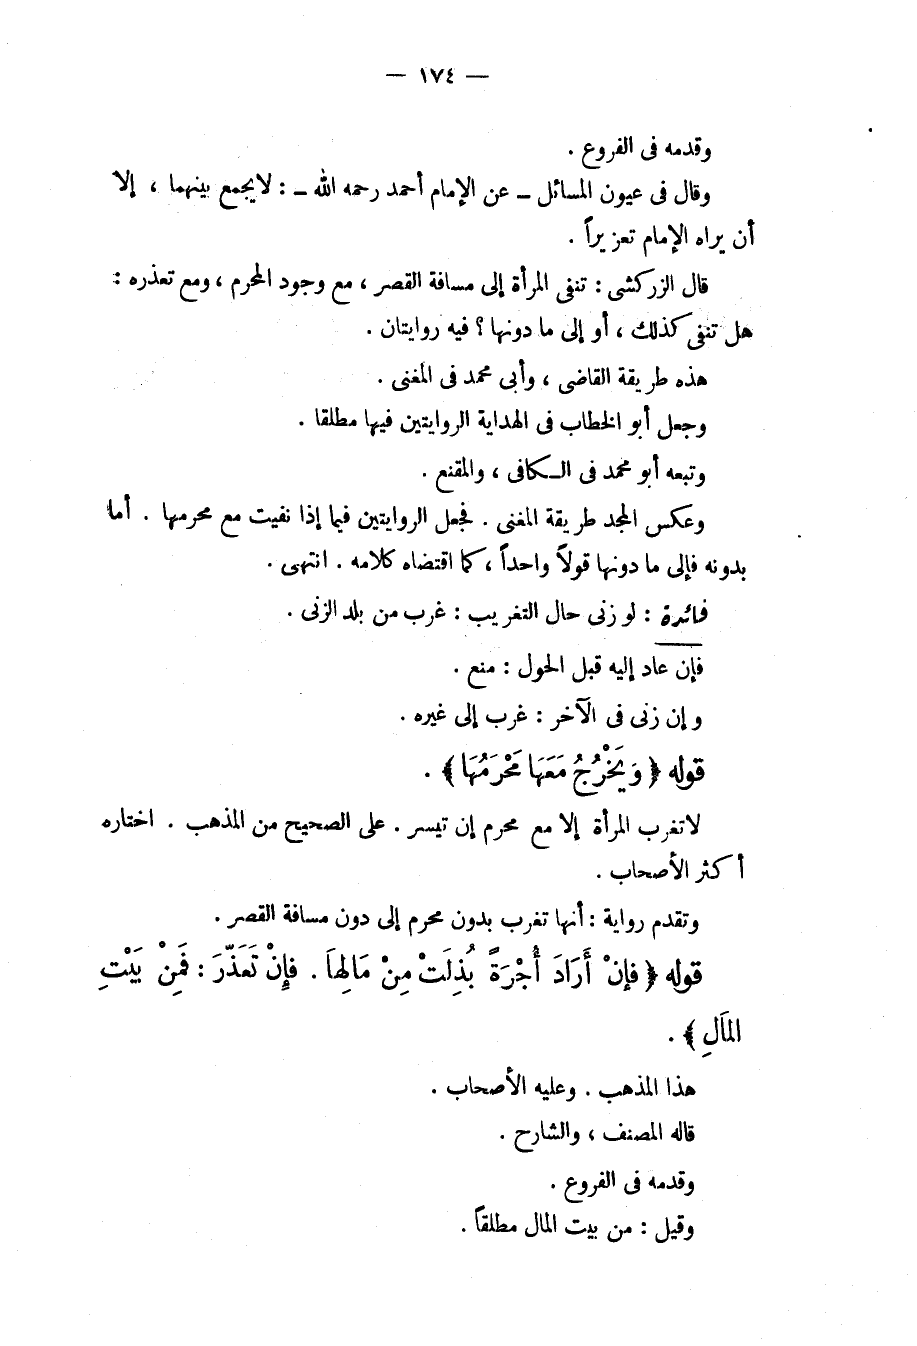 — ١٧٤ —
وقدمه فى الفروع .
وقال فى عيون المسائل ـ عن الإمام أحمد رحمه الله ـ : لايجمع بينهما ، إلا
أن يراه الإمام تعزيراً .
قال الزركشى : تنفى المرأة إلى مسافة القصر ، مع وجود المحرم ، ومع تعذره :
هل تنفى كذلك ، أو إلى ما دونها ؟ فيه روايتان .
هذه طريقة القاضى ، وأبى محمد فى المغنى .
وجعل أبو الخطاب فى الهداية الروايتين فيها مطلقا .
وتبعه أبو محمد فى الكافى ، والمقنع .
وعكس المجد طريقة المغنى . فجعل الروايتين فيما إذا نفيت مع محرمها . أما
بدونه فإلى ما دونها قولاً واحداً ، كما اقتضاه كلامه . انتهى .
فائدة : لو زنى حال التغريب : غرب من بلد الزنى .
فإن عاد إليه قبل الحول : منع .
وإن زنى فى الآخر : غرب إلى غيره .
قوله ﴿ وَيَخْرُجُ مَعَهَا مَحْرَمُهَا ﴾ .
لاتغرب المرأة إلا مع محرم إن تيسر . على الصحيح من المذهب . اختاره
أكثر الأصحاب .
وتقدم رواية : أنها تغرب بدون محرم إلى دون مسافة القصر .
قوله ﴿ فإنْ أَرَادَ أُجْرَةً بُذِلَتْ مِنْ مَالِهاَ . فإِنْ تَعَذّرَ : فَمِنْ بَيْتِ
المَالِ ﴾ .
هذا المذهب . وعليه الأصحاب .
قاله المصنف ، والشارح .
وقدمه فى الفروع .
وقيل : من بيت المال مطلقاً .